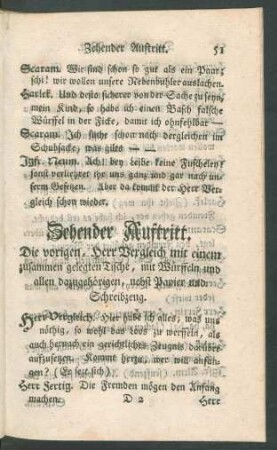 Zehender Auftritt. 51
Scaram. Wir sind schon so gut als ein Paar;
schi! wir wollen unsere Nebenbuhler auslachen.
Harlek. Und desto sicherer von der Sache zu seyn,
mein Kind, so habe ich einen Pasch falsche
Würffel in der Ficke, damit ich ohnfehlbar —
Scaram. Ich suche schon nach dergleichen im
Schubsacke, was giltes — —
Jgfr. Neum. Ach! bey Leibe keine Fuscheley,
sonst verliehret ihr uns ganz und gar nach un-
sern Gesetzen. Aber da kommt der Herr Ver-
gleich schon wieder.
Zehender Auftritt.
Die vorigen. Herr Vergleich mit einem
zusammen gelegten Tische, mit Würfeln und
allen dazugehörigen, nebst Papier und
Schreibzeug.
Herr Vergleich. Hier habe ich alles, was uns
nöthig, so wohl das loos zu werffeln, als
auch hernach ein gerichtliches Zeugnis darüber
aufzusetzen. Kommt herzu, wer will anfan-
gen? (Er setzt sich).
Herr Fertig. Die Fremden mögen den Anfang
machen.
D 2 Herr